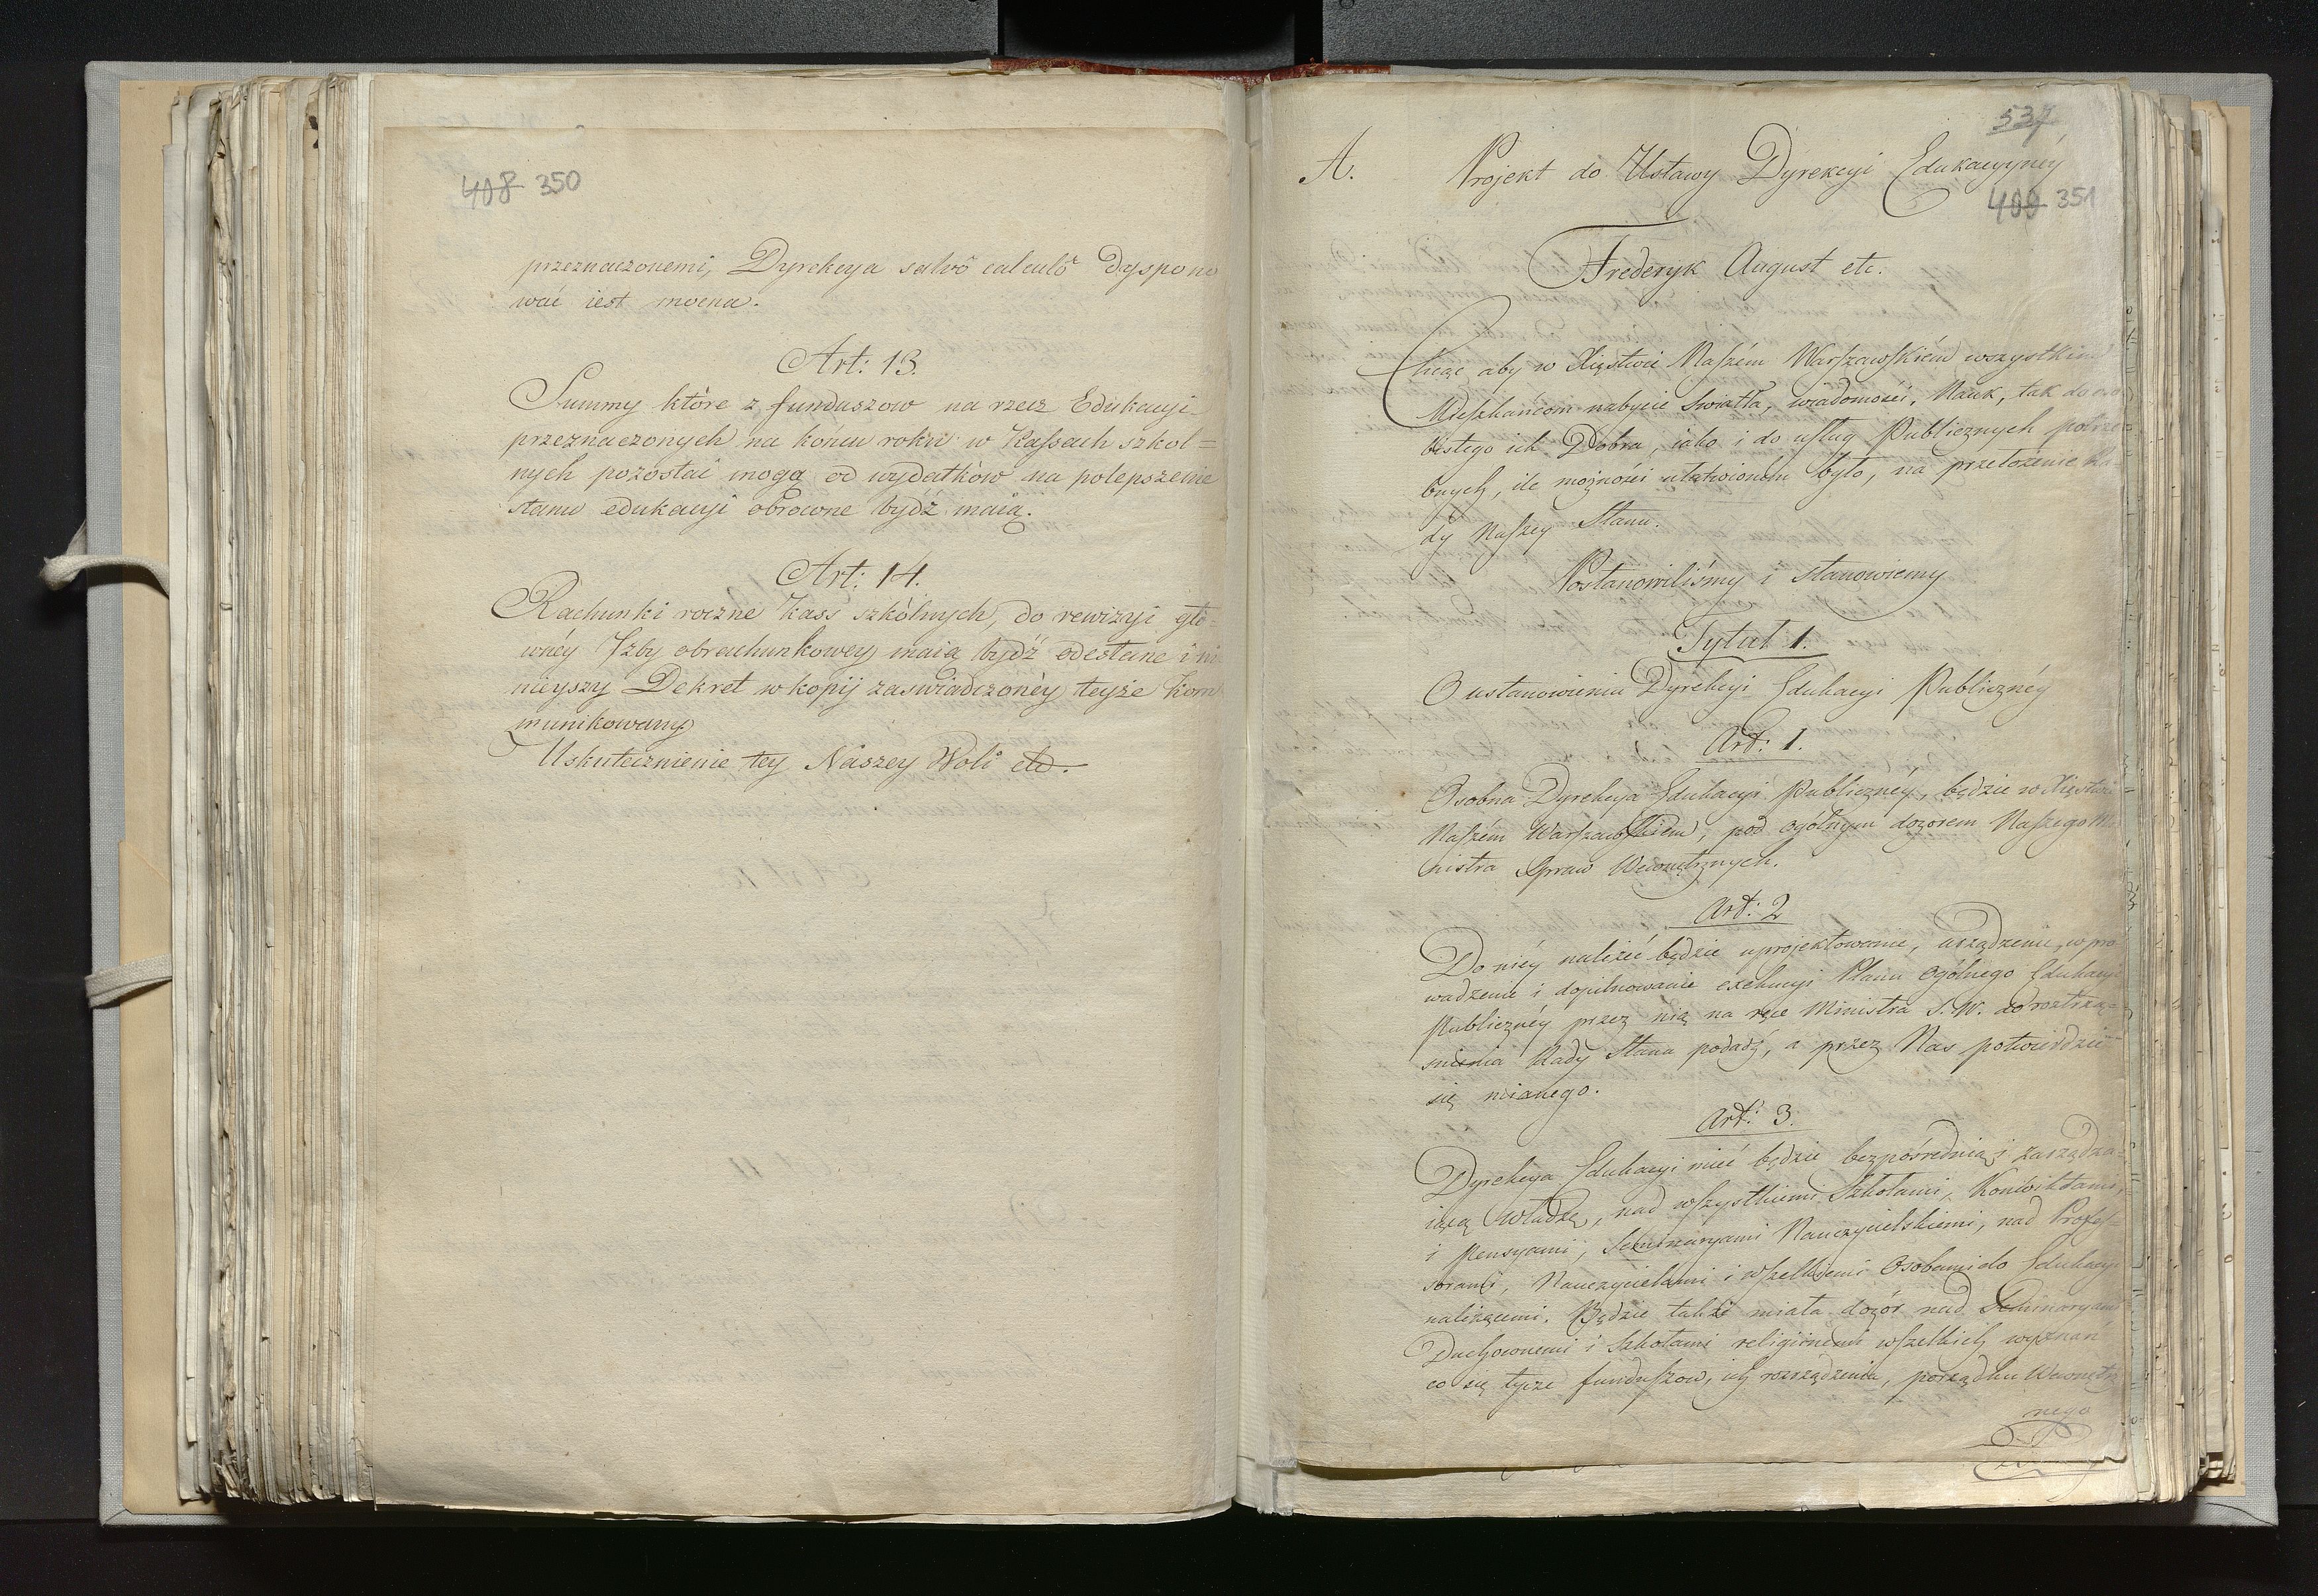 408 350
przeznaczonemi, Dyrekcya salvô calculô dyspono
wać iest mocna.
Art: 13.
Summy które z funduszow na rzecz Edukacyi
przeznaczonych na końcu roku w Kassach szkol=
nych pozostać mogą od wydatków na polepszenie
stanu edukacyi obrocone bydź maią.
Art: 14.
Rachunki roczne Kass szkólnych, do rewizyi głó=
wnéy Izby obrachunkowey maią bydź odesłane i ni
nieyszy Dekret w kopij zaswiadczonéy teyże kom
munikowany
Uskutecznienie tey Naszey Woli etc.
537
A. Projekt do Ustawy Dyrekcyi Edukacyynéy
409 351
Frederyk August etc.
Chcąc aby w Xięstwie Naszém Warszawskiém wszystkim
Mieszkańcom nabycie Swiatła, wiadomości, Nauk, tak do oso
bistego ich Dobra, iako i do usług Publicznych potrze
bnych, ile możności ułatwionem było, na przełożenie Ra
dy Naszey Stanu.
Postanowiliśmy i stanowiemy
Tytuł 1.
O ustanowieniu Dyrekcyi Edukacyi Publicznéy
Art: 1.
Osobna Dyrekcya Edukacyi Publicznéy, będzie w Xięstwie
Naszém Warszawskiem, pod ogólnym dozorem Naszego Mi
nistra Spraw Wewnętrznych.
Art: 2
Do niéy należéć będzie uprojektowanie, urządzenie, wpro
wadzenie i dopilnowanie exekucyi Planu ogólnego Edukacyi
Publicznéy przez nią na ręce Ministra S. W. do roztrzą=
snienia Rady Stanu podadź, a przez Nas potwierdzić
się mianego.
Art: 3.
Dyrekcya Edukacyi mieć będzie bezpośrednią i zarządza=
iącą władzę, nad wszystkiemi Szkołami, Konwiktami,
i Pensyami, Seminaryami Nauczycielskiemi, nad Profes=
sorami, Nauczycielami i wszelkiemi Osobami do Edukacyi
należącemi. Będzie także miała dozór nad Seminaryami
Duchownemi i Szkołami religijnemi wszelkich wyznań
co się tycze funduszow, ich rozrządzenia, porządku Wewnętrz
nego